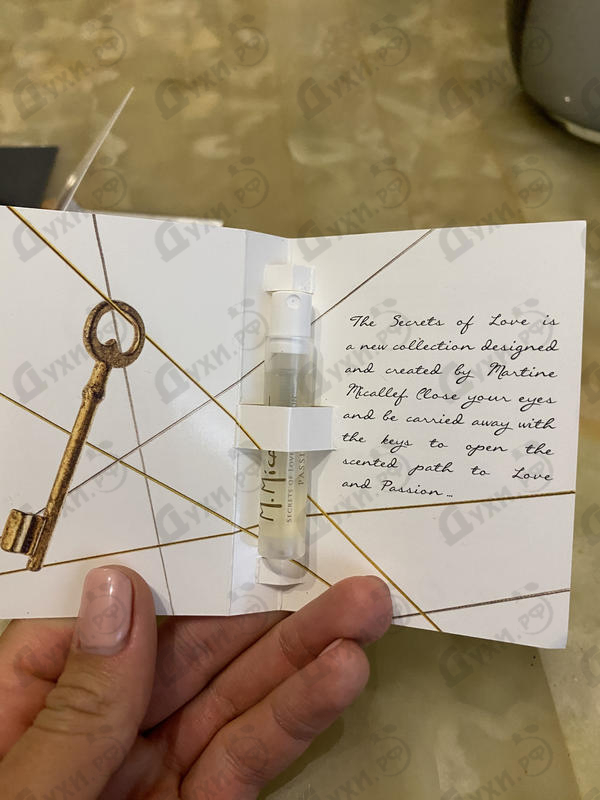 The Secrets of Love is
a new collection designed
and created by Martine
Micallef Close your eyes
and be carried away with
the keys to open the
scented path to Love
and Passion...
M. Mica
SECRETS OF LOVE
PASSI
Духи.рф